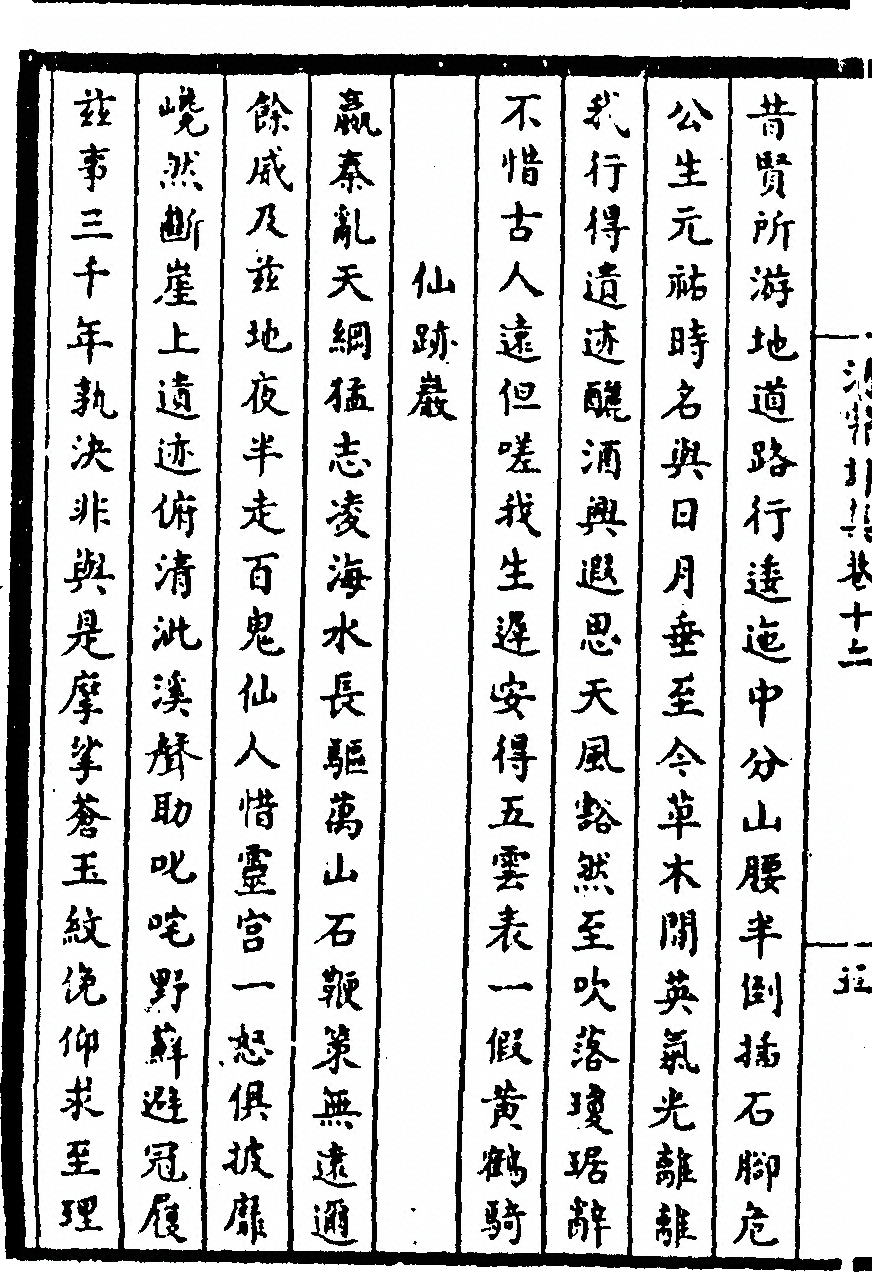 昔賢所游地道路行逶迤中分山腰半倒插石腳危
公生元祐時名與日月垂至今草木間英氣光離離
我行得遺迹釃酒興遐思天風豁然至吹落瓊琚辭
不惜古人遠但嗟我生遲安得五雲表一假黃鶴騎
仙跡巖
嬴秦亂天綱猛志凌海水長驅萬山石鞭策無遠邇
餘威及茲地夜半走百鬼仙人惜靈宮一怒俱披靡
巉然斷崖上遺迹俯清泚溪聲助叱咤野蘚避冠屐
茲事三千年孰決非與是摩挲蒼玉紋俛仰求至理
卷十六